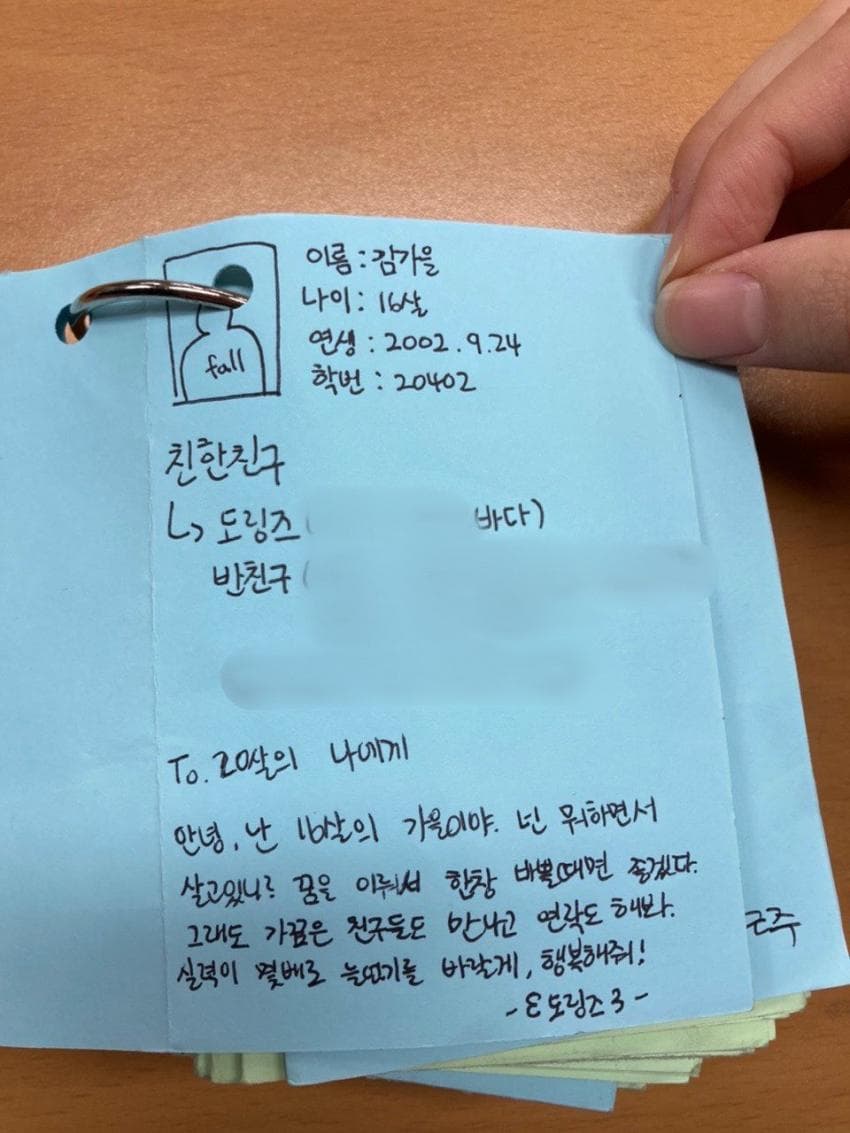 fall
이름 : 김가을
나이 : 16살
연생 : 2002.9.24
학번 : 20402
친한친구
↳ 도링즈 ( 바다)
반친구 (
To. 20살의 나에게
안녕, 난 16살의 가을이야. 넌 뭐하면서
살고있니? 꿈을 이뤄서 한창 바쁠때면 좋겠다.
그래도 가끔은 친구들도 만나고 연락도 해봐.
실력이 몇배로 늘었기를 바랄게, 행복해줘!
- ε도링즈3 -
근주